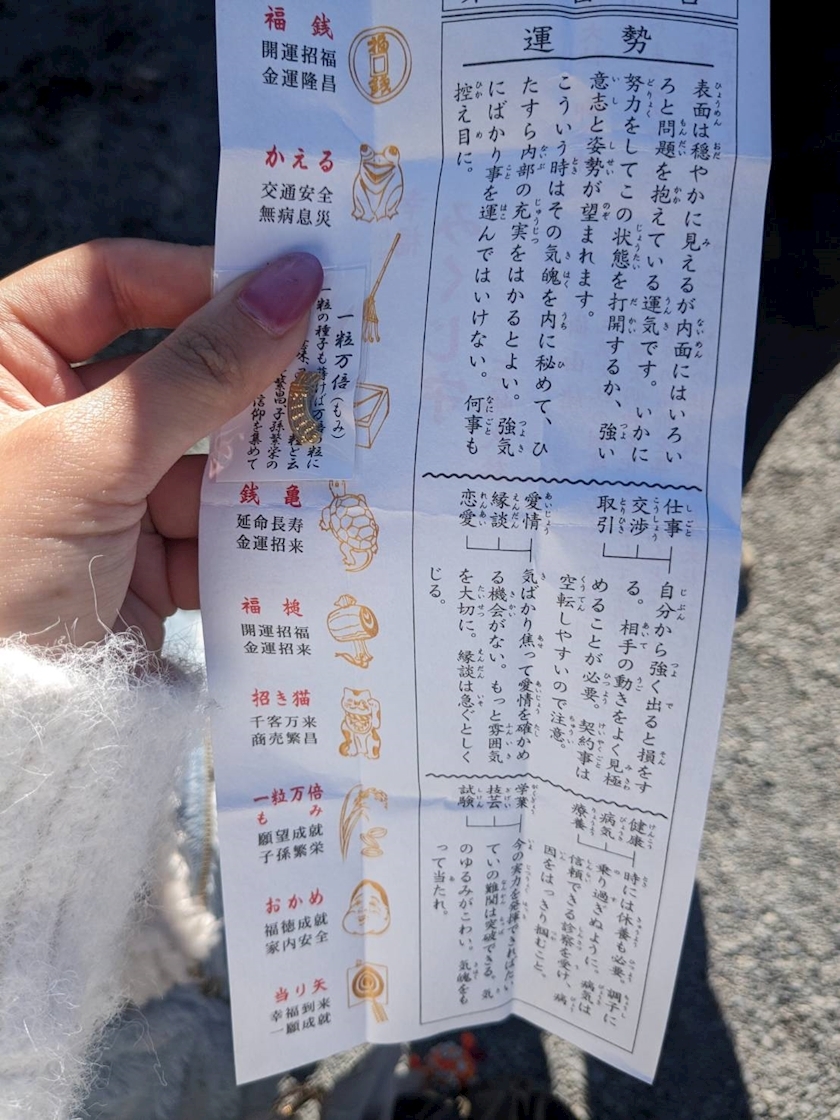 運勢
表面は穏やかに見えるが内面にはいろい
ろと問題を抱えている運気です。いかに
努力をしてこの状態を打開するか、強い
意志と姿勢が望まれます。
こういう時はその気魄を内に秘めて、ひ
たすら内部の充実をはかるとよい。強気
にばかり事を運んではいけない。何事も
控え目に。
仕事
交渉
取引
自分から強く出ると損をす
る。相手の動きをよく見極
めることが必要。契約事は
空転しやすいので注意。
愛情
縁談
恋愛
気ばかり焦って愛情を確かめ
る機会がない。もっと雰囲気
を大切に。縁談は急ぐとしく
じる。
健康
病気
療養
時には休養も必要。調子に
乗り過ぎぬように。病気は
信頼できる診察を受け、病
因をはっきり掴むこと。
学業
技芸
試験
今の実力を発揮できればたい
ていの難関は突破できる。気
のゆるみがこわい。気魄をも
って当たれ。
福銭
開運招福
金運隆昌
福
銭
かえる
交通安全
無病息災
一粒万倍(もみ)
一粒の種子も蒔けば万倍の粒に
繁昌子孫繁栄の
信仰を集めて
銭亀
延命長寿
金運招来
福槌
開運招福
金運招来
招き猫
千客万来
商売繁昌
一粒万倍
もみ
願望成就
子孫繁栄
おかめ
福徳成就
家内安全
当り矢
幸福到来
一願成就